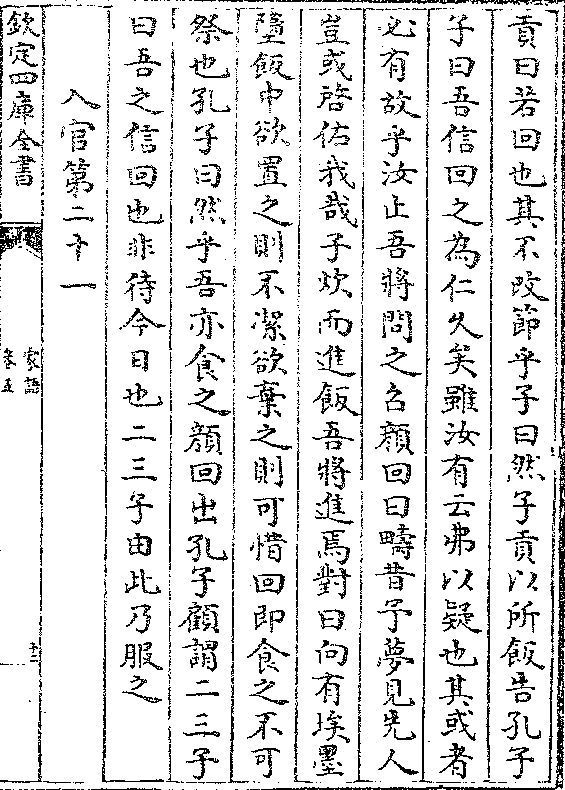 貢曰若回也其不改節乎子曰然子貢以所飯告孔子
子曰吾信回之為仁久矣雖汝有云弗以疑也其或者
必有故乎汝止吾將問之召顔回曰疇昔予夢見先人
豈或啓佑我哉子炊而進飯吾將進焉對曰向有埃墨
墮飯中欲置之則不潔欲棄之則可惜回即食之不可
祭也孔子曰然乎吾亦食之顔回出孔子顧謂二三子
曰吾之信回也非待今日也二三子由此乃服之
入官第二十一
欽定四庫全書
家語
卷五